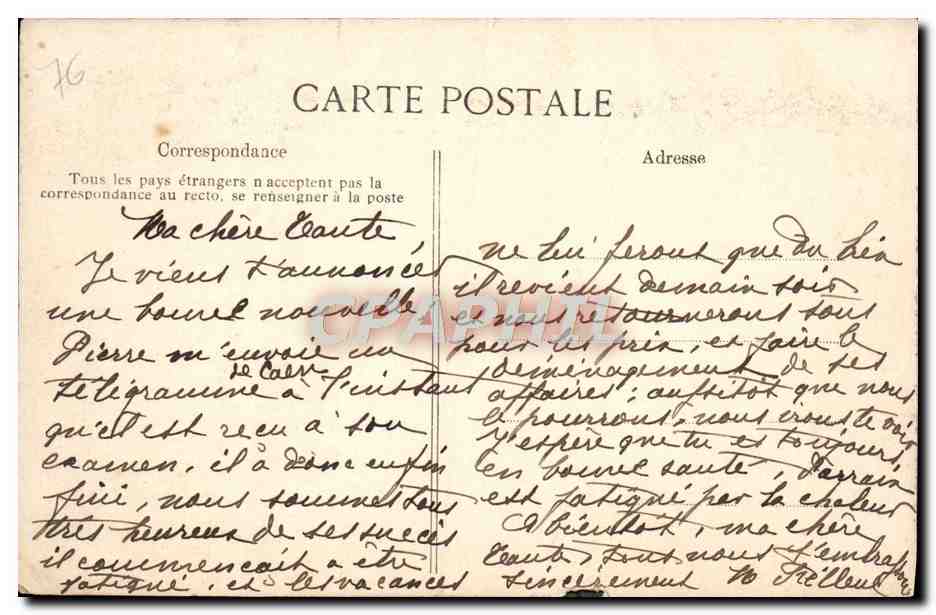 76
CARTE POSTALE
Correspondance
Tous les pays étrangers n'acceptent pas la
correspondance au recto, se renseigner à la poste
Ma chère Tante,
Je viens t'annoncer
une bonne nouvelle,
Pierre m'envoie un
de Caen
télégramme à l'instant
qu'il est reçu à son
examen, il à donc enfin
fini, nous sommes tous
très heureux de ses succès
il commencait a être
fatigué, et les vacances
Adresse
ne lui feront que du bien
il revient demain soir
et nous retournerons tous
pour les prix, et faire le
déménagement de ses
affaires; aussitôt que nous
le pourrons, nous irons te voir
J'espère que tu es toujours
en bonne santé,
est fatigué par la chaleur
A bientôt, ma chère
Tante, tous nous t'embrassons
sincèrement
CPAPHIL